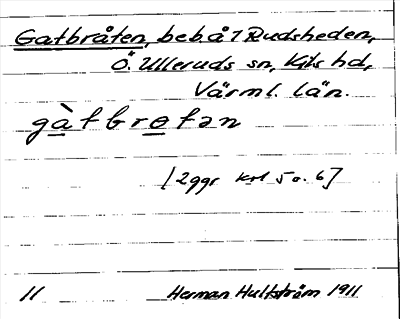 Gatbråten, beb. å 7 Rudsheden,
Ö. Ulleruds sn, Kils hd,
Värml. län.
gàtbrɵtən
[2ggr krl 5 o. 6]
11 Herman Hultström 1911